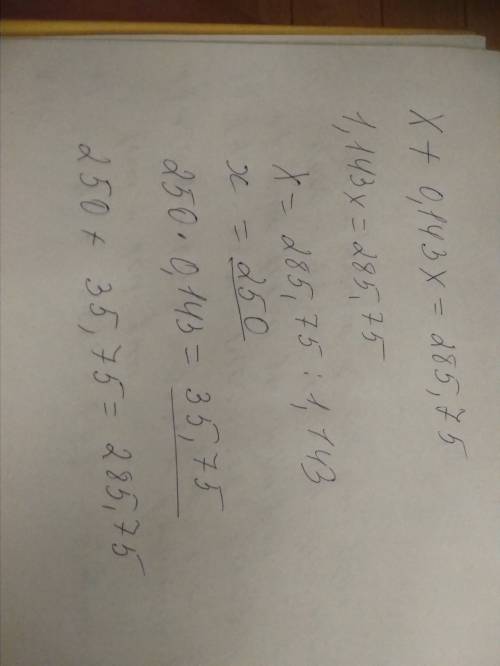 X + 0,143x = 285,75
1,143x = 285,75
X = 285,75 : 1,143
x = 250
250 · 0,143 = 35,75
250 + 35,75 = 285,75